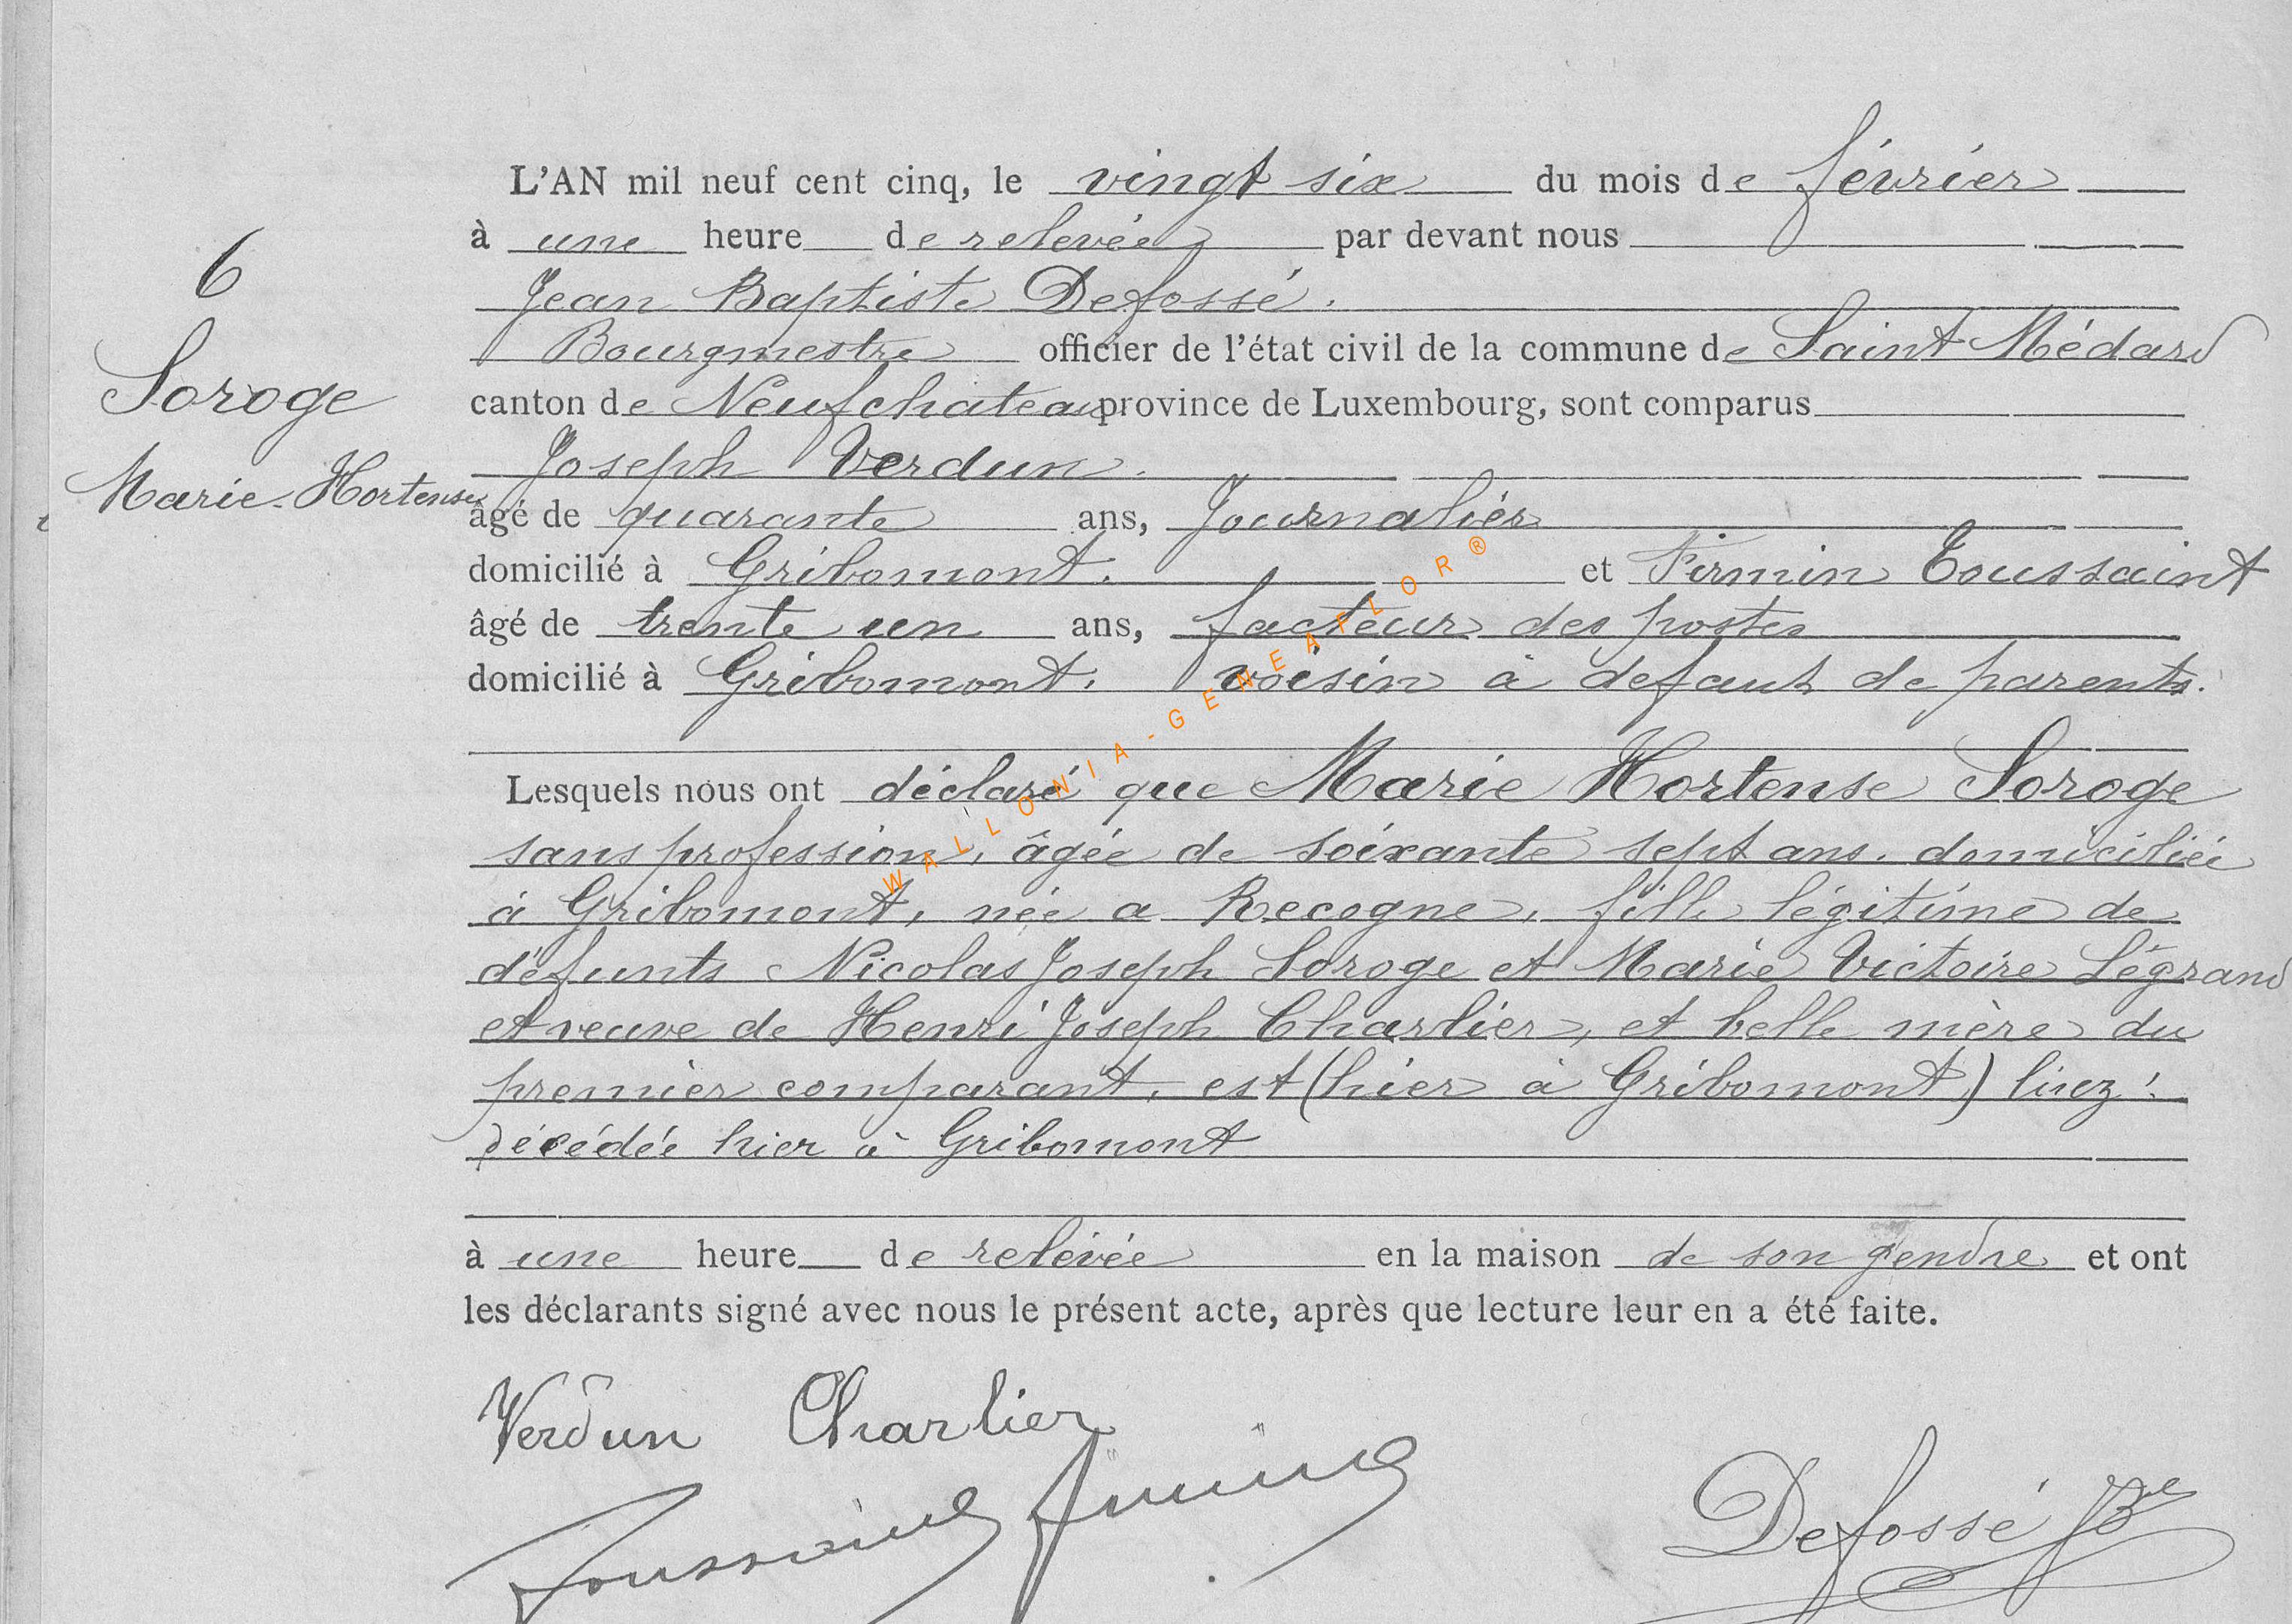 L'AN mil neuf cent cinq, le vingt six du mois de février
à une heure de relevée par devant nous
6
Jean Baptiste Defossé.
Bourgmestre officier de l'état civil de la commune de Saint Médard
Soroge
canton de Neufchateau province de Luxembourg, sont comparus
Joseph Verdun.
Marie-Hortense
âgé de quarante ans, Journalier
domicilié à Gribomont. et Firmin Toussaint
âgé de trente un ans, facteur des postes
domicilié à Gribomont. voisin à defaut de parents.
Lesquels nous ont déclaré que Marie Hortense Soroge
sans profession, âgée de soixante sept ans. domiciliée
à Gribomont, née a Recogne, fille légitime de
défunts Nicolas Joseph Soroge et Marie Victoire Légrand
et veuve de Henri Joseph Charlier, et belle mère du
premier comparant, est (hier à Gribomont) lisez:
décédée hier à Gribomont
à une heure de relévée en la maison de son gendre et ont
les déclarants signé avec nous le présent acte, après que lecture leur en a été faite.
Verdun Charlier
Toussaint Firmin
Defossé JBte
WALLONIA-GENEAFLOR®